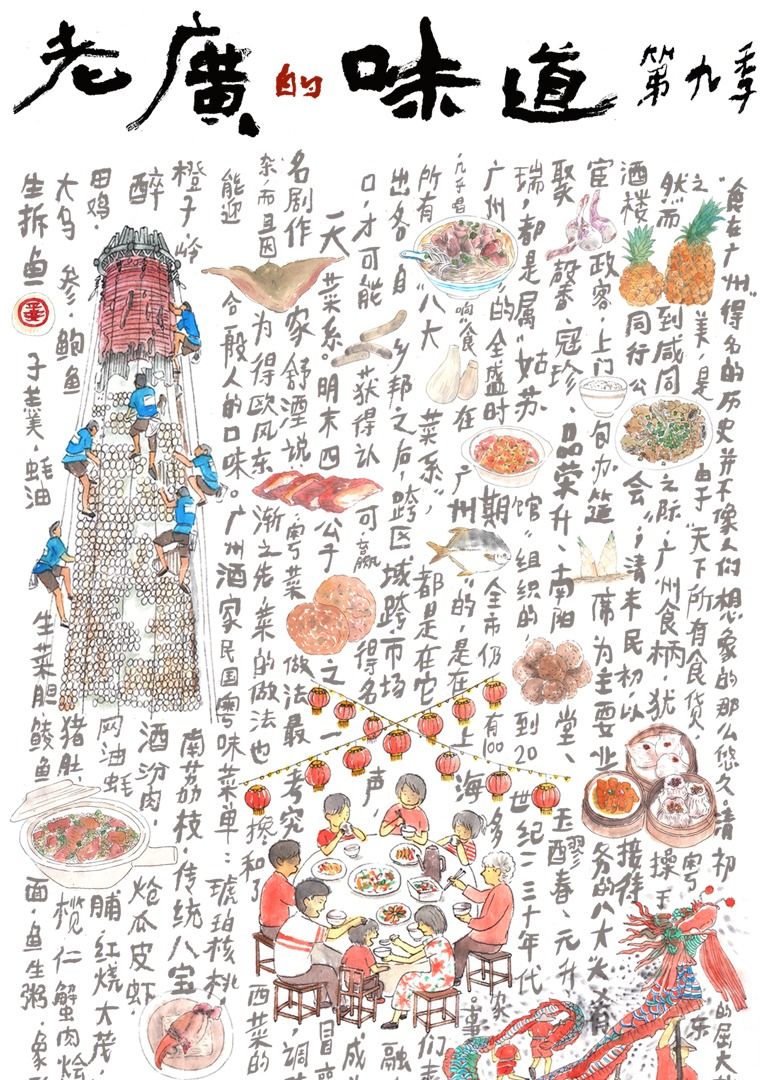 老廣的味道 第九季
“食在广州”得名的历史并不像人们想象的那么悠久,清初的屈大
之美,是由于“天下所有食货,粤东
然而到咸同之际,广州食柄,犹操于
酒楼同行公会”,清末民初,以接待
宦政客,上门包办筵席为主要业务的八大大肴
聚馨、冠珍、品荣升、南阳堂、玉醪春、元升
瑞,都是属“姑苏馆”组织的,到20世纪二三十年代
广州的全盛时期,全市仍有100多家
几乎唱响“食在广州”的,是在上海。事
所有“八大菜系”,都是在它们
出各自乡邦之后,跨区域跨市场融
口,才可能获得认可,赢得名声,成
一天菜系。明末四公子之一冒
名剧作家舒湮说:粤菜做法最考究,调
杂,而且因为得欧风东渐之先,菜的做法也掺和了西菜的
能迎合一般人的口味。广州酒家民国粤味菜单:琥珀核桃,
橙子岭南荔枝,传统八宝
醉酒汾肉,炝瓜皮虾,
田鸡,网油蚝脯,红烧大茂,
大乌参,鲍鱼猪肚,榄仁蟹肉烩
生拆鱼子羹,蚝油生菜胆鲮鱼面,鱼生粥,象